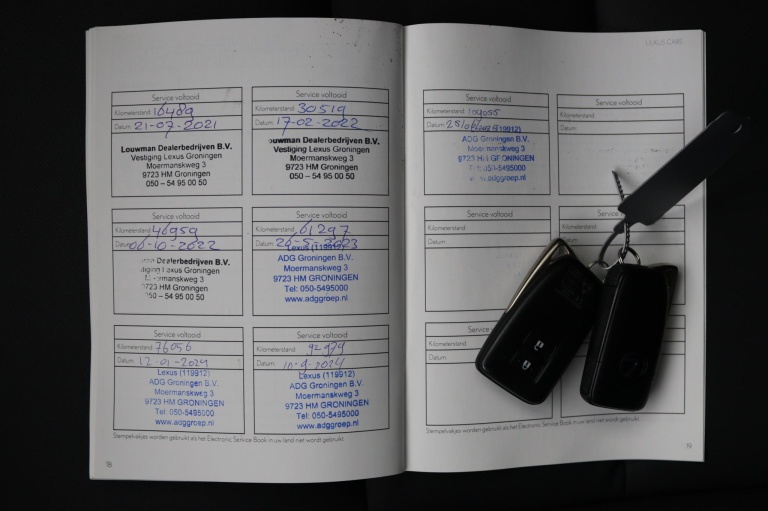 LEXUS CARE
Service voltooid
Kilometerstand: 16489
Datum: 21-07-2021
Louwman Dealerbedrijven B.V.
Vestiging Lexus Groningen
Moermanskweg 3
9723 HM Groningen
050 – 54 95 00 50
Service voltooid
Kilometerstand: 30519
Datum: 17-02-2022
ouwman Dealerbedrijven B.V.
Vestiging Lexus Groningen
Moermanskweg 3
9723 HM Groningen
050 – 54 95 00 50
Service voltooid
Kilometerstand: 46959
Datum: 06-10-2022
Dealerbedrijven B.V.
Lexus Groningen
Moermanskweg 3
9723 HM Groningen
050 – 54 95 00 50
Service voltooid
Kilometerstand: 61297
Datum: 26-5-2023
Lexus (119912)
ADG Groningen B.V.
Moermanskweg 3
9723 HM GRONINGEN
Tel: 050-5495000
www.adggroep.nl
Service voltooid
Kilometerstand: 76056
Datum: 12-01-2024
Lexus (119912)
ADG Groningen B.V.
Moermanskweg 3
9723 HM GRONINGEN
Tel: 050-5495000
www.adggroep.nl
Service voltooid
Kilometerstand: 92979
Datum:
Lexus (119912)
ADG Groningen B.V.
Moermanskweg 3
9723 HM GRONINGEN
Tel: 050-5495000
www.adggroep.nl
Stempelvakjes worden gebruikt als het Electronic Service Book in uw land niet wordt gebruikt.
18
Service voltooid
Kilometerstand:
Datum:
Lexus (119912)
ADG Groningen B.V.
Moermanskweg 3
9723 HM GRONINGEN
Tel: 050-5495000
www.adggroep.nl
Service voltooid
Kilometerstand:
Datum:
Service voltooid
Kilometerstand:
Datum:
Service voltooid
Kilometerstand
Datum:
Service voltooid
Kilometerstand:
Datum:
Stempelvakjes worden gebruikt als het Electronic Service Book in uw land niet wordt gebruikt.
19